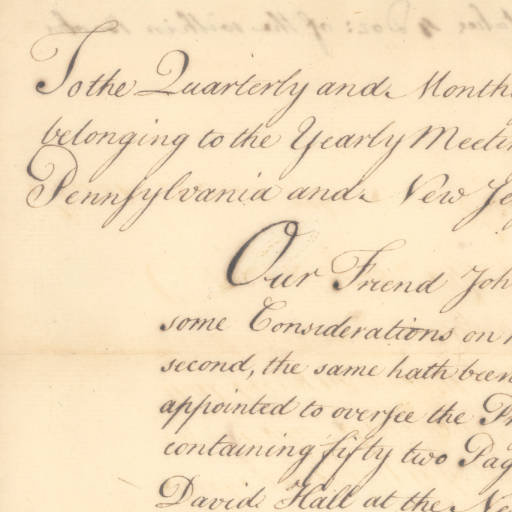 To the Quarterly and Month
belonging to the Yearly Meetin
Pennsylvania and New Je
Our Friend Joh
some Considerations on
second, the same hath been
appointed to oversee the Pr
containing fifty two Pag
David Hall at the Ne